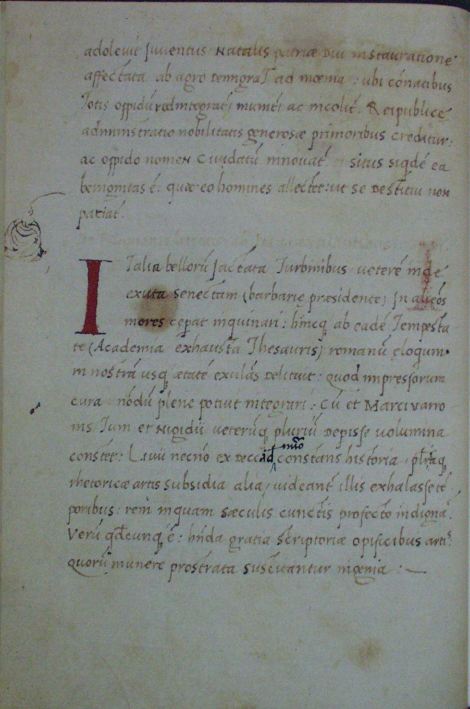 adoleuit Juuentus Natalis patriæ Diu instauratione
affectata ab agro temgrat ad mœnia : ubi conatibus
totis oppidū ac incolūt . Reipublice
administratio nobilitatis generosæ primoribus creditur :
ac oppido nomen Ciuidatū innouat situs siqdē ea
benignitas ē : quæ eo homines allectet ut se destitui non
patiat .
Italia bellorū Jactata Turbinibus ueterē inde
exuta senectam (barbarie præsidente) In alieōs
mores cepat inquinari : hincq ab eadē Tempesta
te (Academia exhausta Thesauris) romanū eloquium
in nostrā usq ætate exulās delituit : quod impressorum
cura nōdū plene potuit integrari : Cū et Marci uarro
nis Tum et Nigidii ueterūq pluriū Depisse uolumina
constet : Liuii necnō ex constans historia
rhetoricæ artis subsidia alia uideant illis exhalasse tē
poribus : rem inquam sæculis cunctis profecto indignā
Verū qdcunq ē : hñda gratia scriptoriæ opificibus artis
quorū munere prostrata susciuantur mœnia :